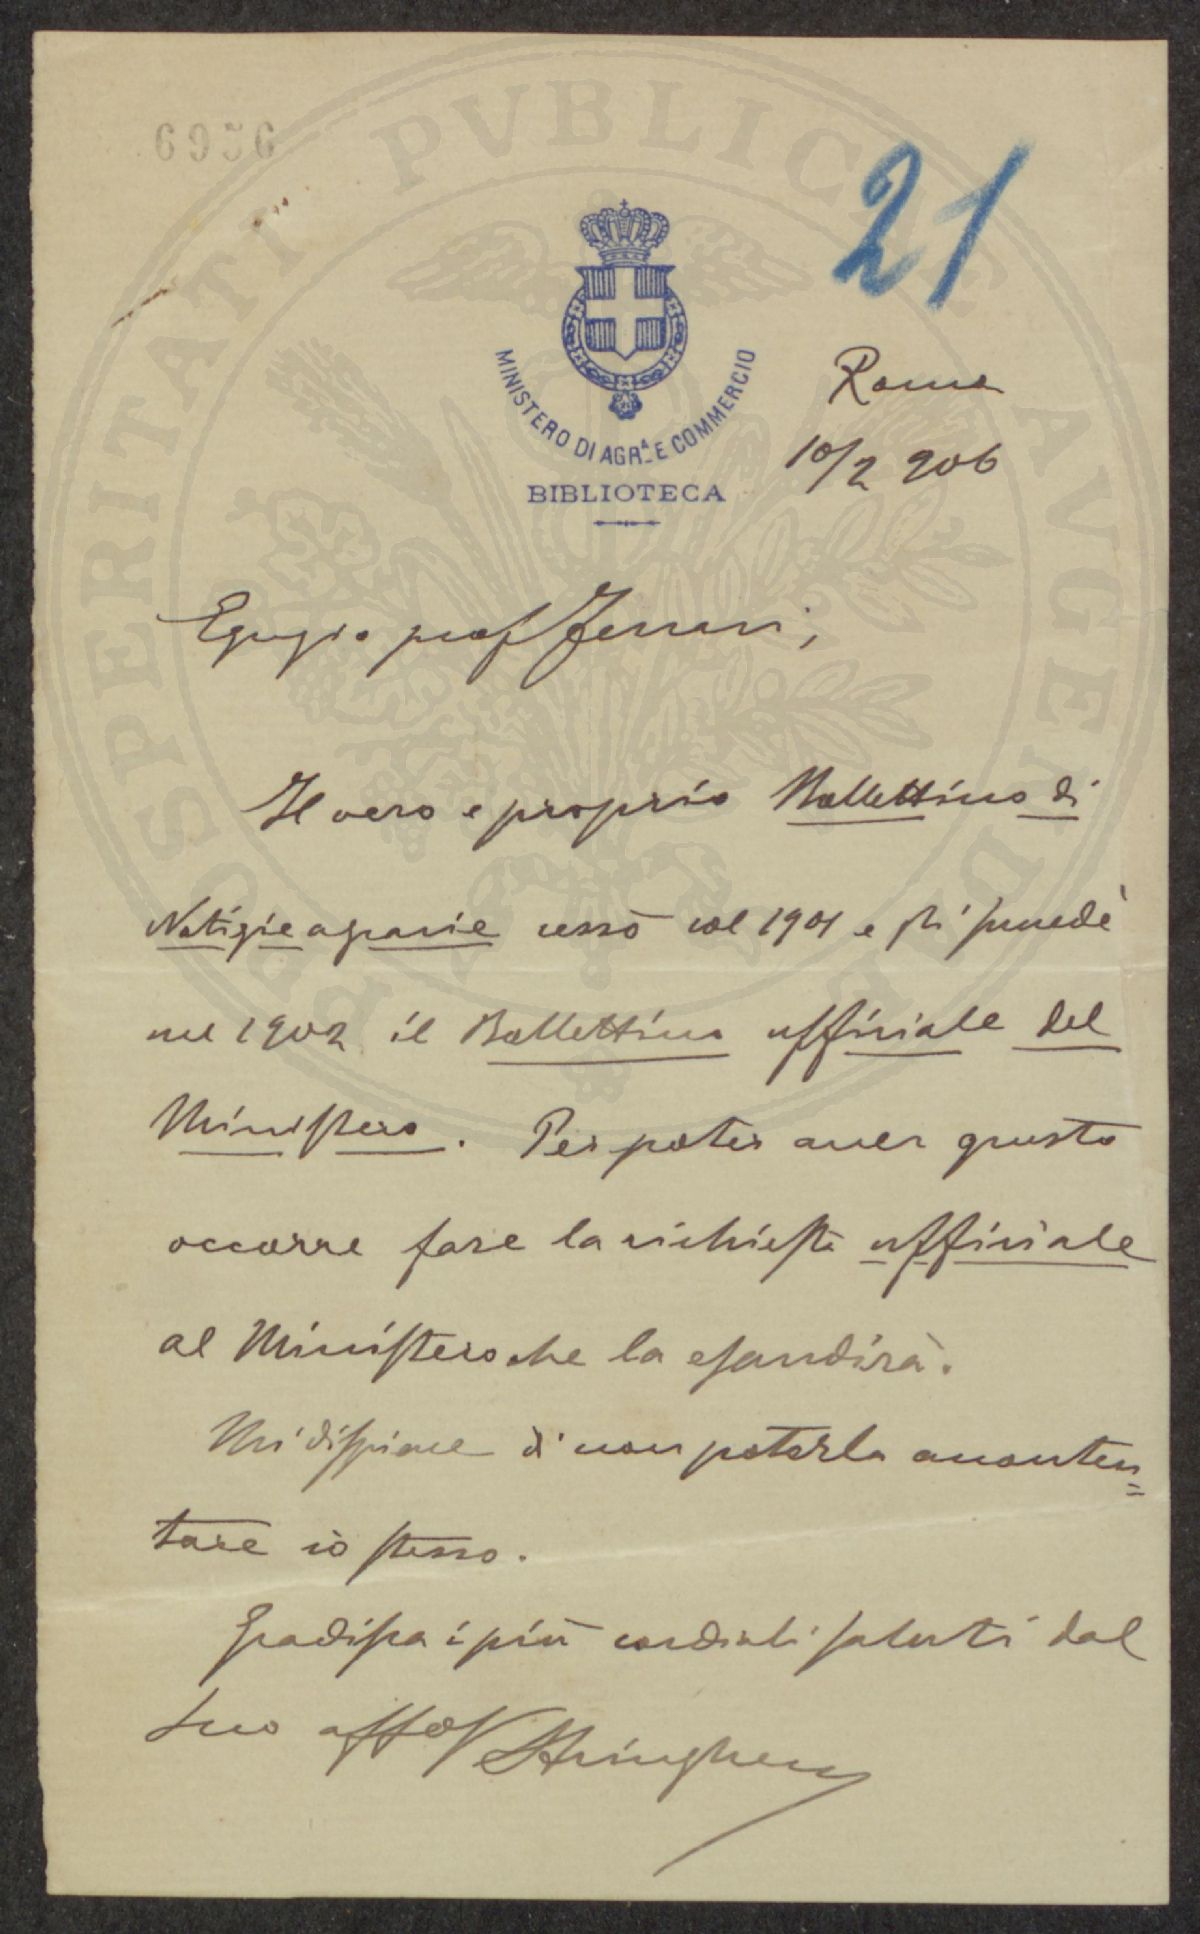 6956
PROSPERITATI PVBLICAE AVGENDAE
21
MINISTERO DI AGR.A E COMMERCIO
BIBLIOTECA
Roma
10/2 906
Egregio prof Ferrari,
Il vero e proprio Bollettino di
Notizie agrarie cessò col 1901 e gli succedè
nel 1902 il Bollettino ufficiale del
Ministero. Per poter aver questo
occorre fare la richiesta ufficiale
al Ministero che la esaudirà.
Mi dispiace di non poterla acconten=
tare io stesso.
Gradisca i più cordiali saluti dal
Suo affo